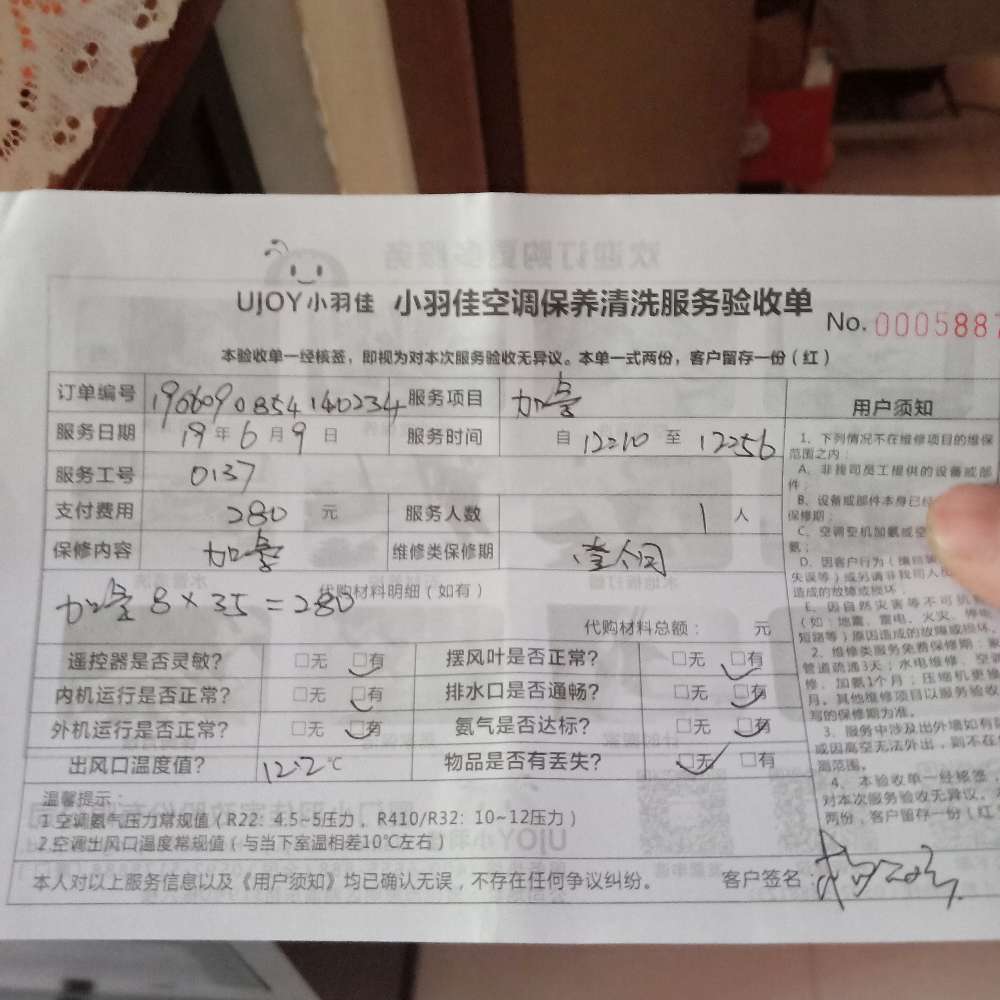 UJOY小羽佳 小羽佳空调保养清洗服务验收单
No. 0005887
本验收单一经核签，即视为对本次服务验收无异议。本单一式两份，客户留存一份（红）
订单编号 190609085414 0234 服务项目
服务日期 19 年 6 月 9 日 服务时间 自 12:10 至 12:56
服务工号 0137
支付费用 280 元 服务人数 1 人
保修内容 维修类保修期
代购材料明细（如有）
8×35=280
代购材料总额： 元
遥控器是否灵敏？ □无 □有 摆风叶是否正常？ □无 □有
内机运行是否正常？ □无 □有 排水口是否通畅？ □无 □有
外机运行是否正常？ □无 □有 氨气是否达标？ □无 □有
出风口温度值？ 12.2 ℃ 物品是否有丢失？ □无 □有
温馨提示：
1.空调氨气压力常规值（R22：4.5~5压力，R410/R32：10~12压力）
2.空调出风口温度常规值（与当下室温相差10℃左右）
本人对以上服务信息以及《用户须知》均已确认无误，不存在任何争议纠纷。 客户签名：
用户须知
1、下列情况不在维修项目的维保
范围之内：
A、非我司员工提供的设备或部
件；
B、设备或部件本身已经
保修期；
C、空调空机加氨或空
氨；
D、因客户行为（
失误等）或另请非我司人
造成的故障或损坏；
E、因自然灾害等不可抗
（如：地震、雷电、火灾、
短路等）原因造成的故障或损坏。
2、维修类服务免费保修期：
管道疏通3天；水电维修、空
修、加氨1个月；压缩机更
月。其他维修项目以服务验收
写的保修期为准。
3、服务中涉及出外墙如有
或因高空无法外出，则不在
测范围。
4、本验收单一经核签，
对本次服务验收无异议。
两份，客户留存一份（红